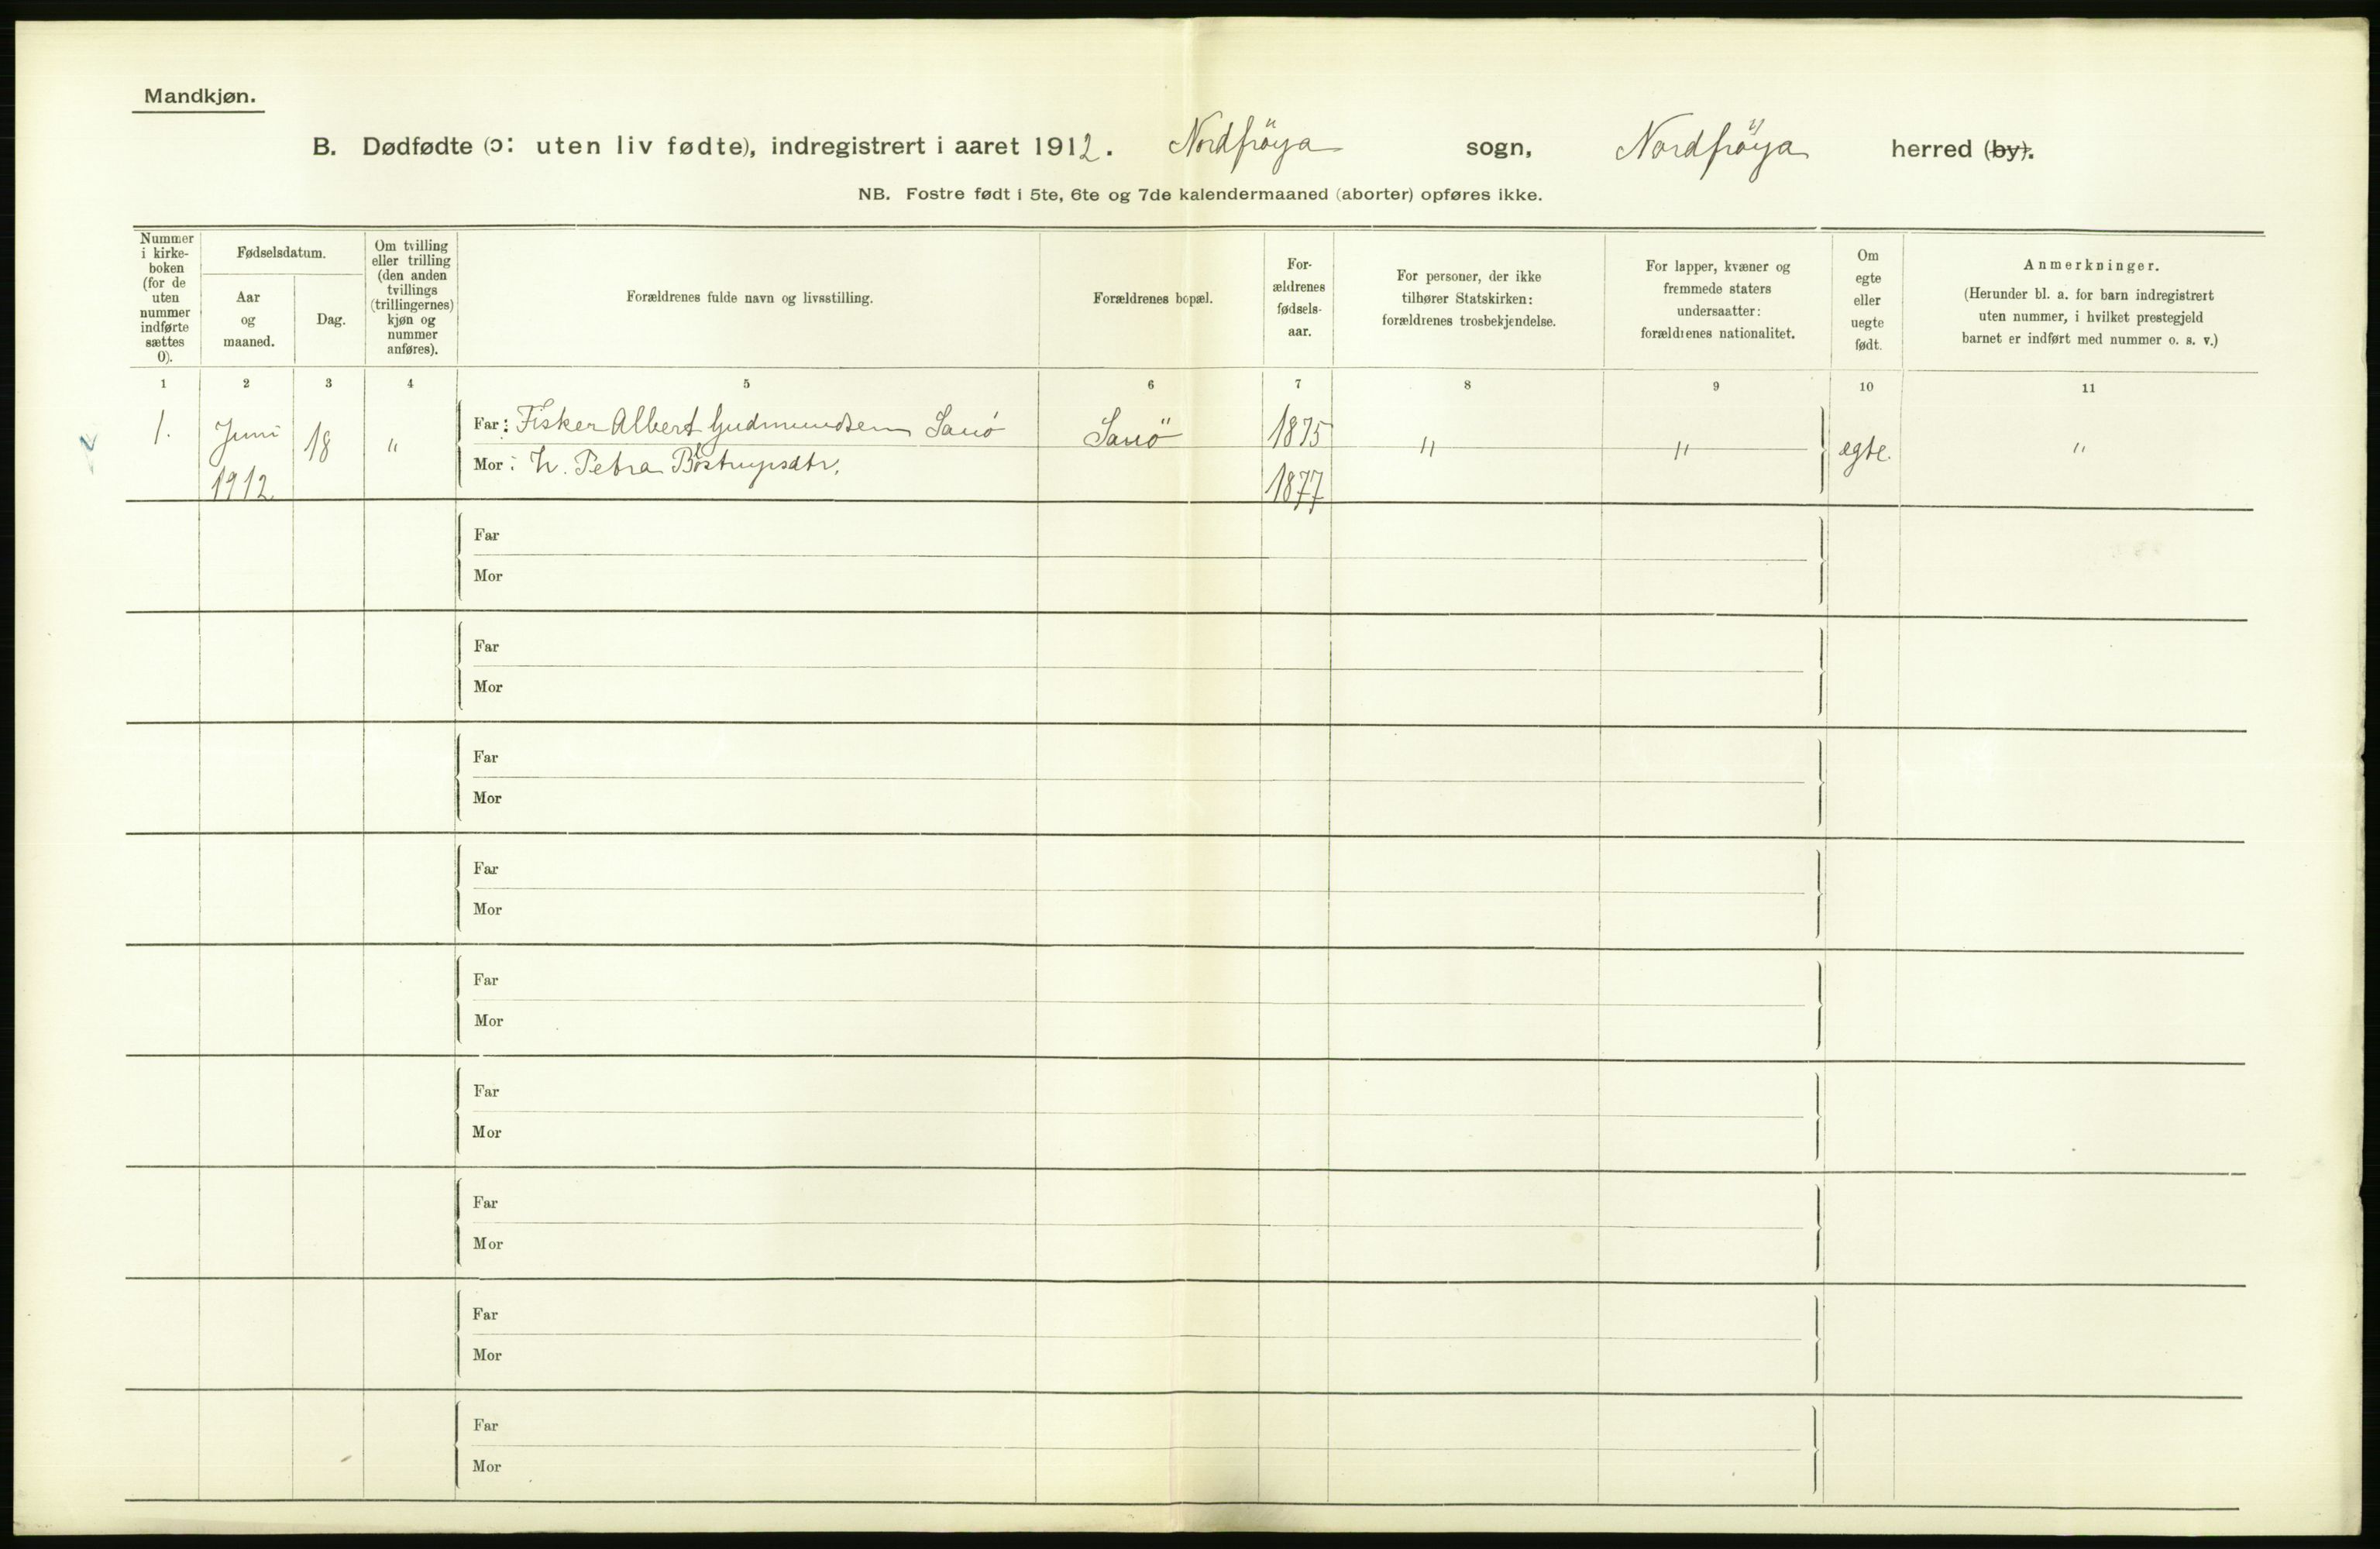 Mandkjøn.
B. Dødfødte (ɔ: uten liv fødte), indregistrert i aaret 1912. Nordfröya sogn, Nordfröya herred (by).
NB. Fostre født i 5te, 6te og 7de kalendermaaned (aborter) opføres ikke.
Nummer
i kirke-
boken
(for de
uten
nummer
indførte
sættes
0).
Fødselsdatum.
Aar
og
maaned.
Dag.
Om tvilling
eller trilling
(den anden
tvillings
(trillingernes)
kjøn og
nummer
anføres).
Forældrenes fulde navn og livsstilling.
Forældrenes bopæl.
For-
ældrenes
fødsels-
aar.
For personer, der ikke
tilhører Statskirken:
forældrenes trosbekjendelse.
For lapper, kvæner og
fremmede staters
undersaatter:
forældrenes nationalitet.
Om
egte
eller
uegte
født.
Anmerkninger.
(Herunder bl. a. for barn indregistrert
uten nummer, i hvilket prestegjeld
barnet er indført med nummer o. s. v.)
1 2 3 4 5 6 7 8 9 10 11
1. Juni 18 " Far: Fisker Albert Gudmundsen Sauö Sauö 1875 " " egte. "
1912 Mor: h. Petra 1877
Far
Mor
Far
Mor
Far
Mor
Far
Mor
Far
Mor
Far
Mor
Far
Mor
Far
Mor
Far
Mor